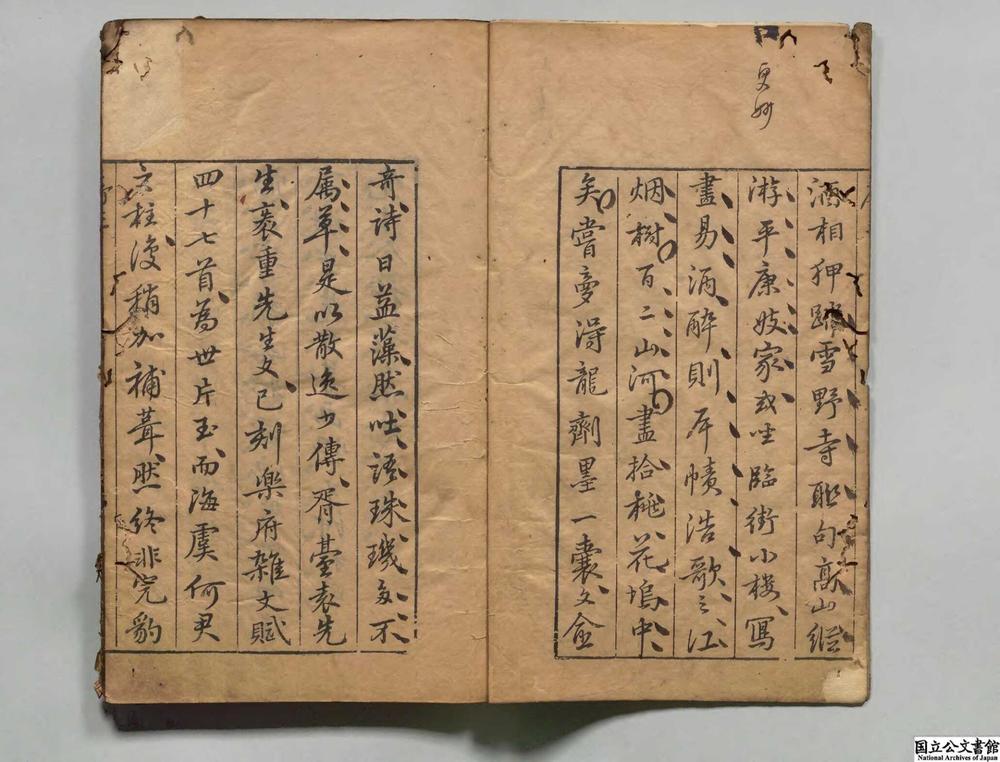 更妙
酒相狎踏雪野寺聯句高山縱
游平康妓家或坐臨街小樓寫
畫易酒醉則岸幘浩歌三江
烟樹百二山河盡拾桃花塢中
矣嘗夢得龍劑墨一囊文
竒詩日益藻然吐語珠璣多不
属草是以散逸少傳胥臺袁先
生裒重先生文已刻樂府雜文賦
四十七首為世片玉而海虞何君
立柱復稍加補葺然終非完豹
国立公文書館
National Archives of Japan